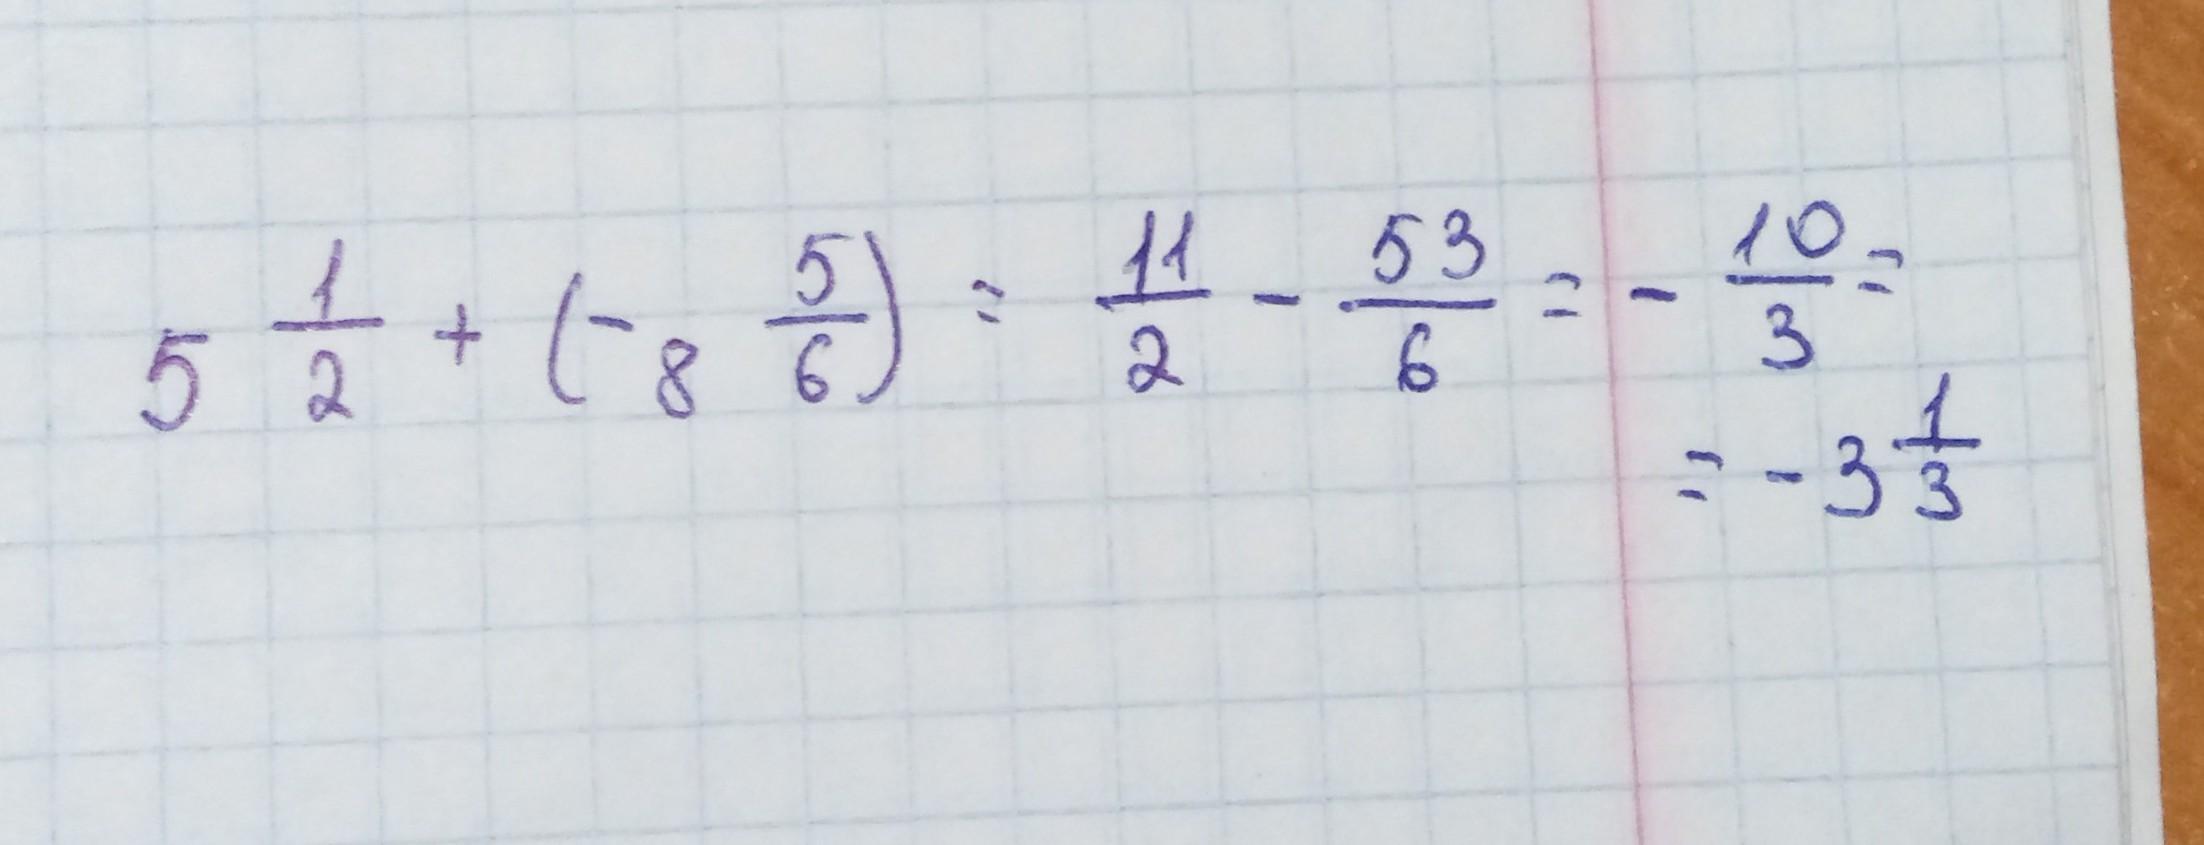 5 1/2 + (- 8 5/6) = 11/2 - 53/6 = - 10/3 =
= - 3 1/3